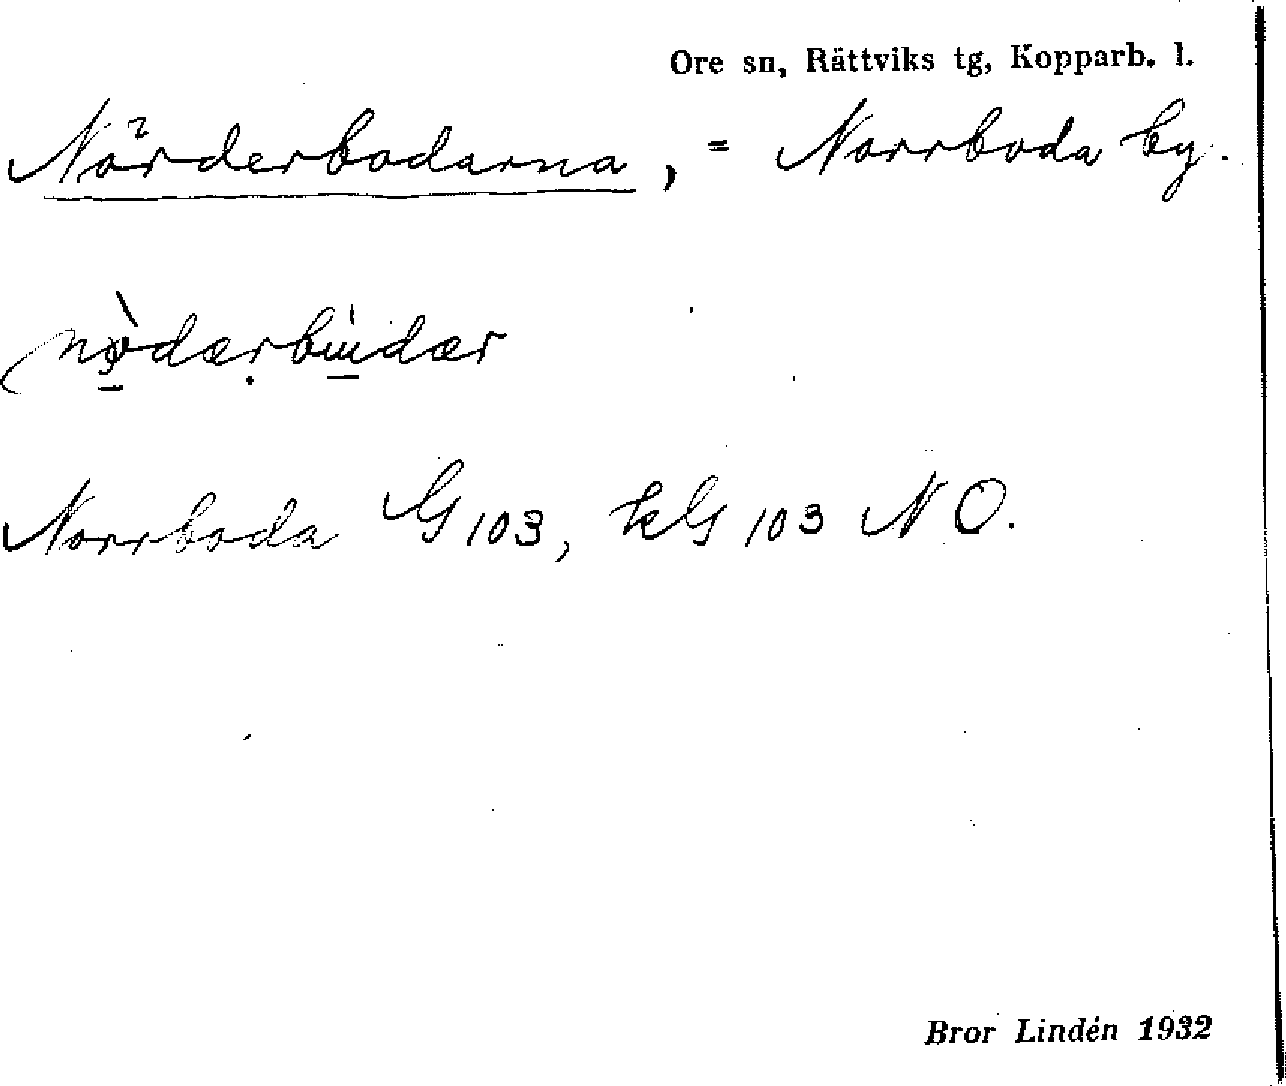 Ore sn, Rättviks tg, Kopparb. l.
Nörderbodarna, = Norrboda by.
Norrboda G 103, kG 103 NO.
Bror Lindén 1932